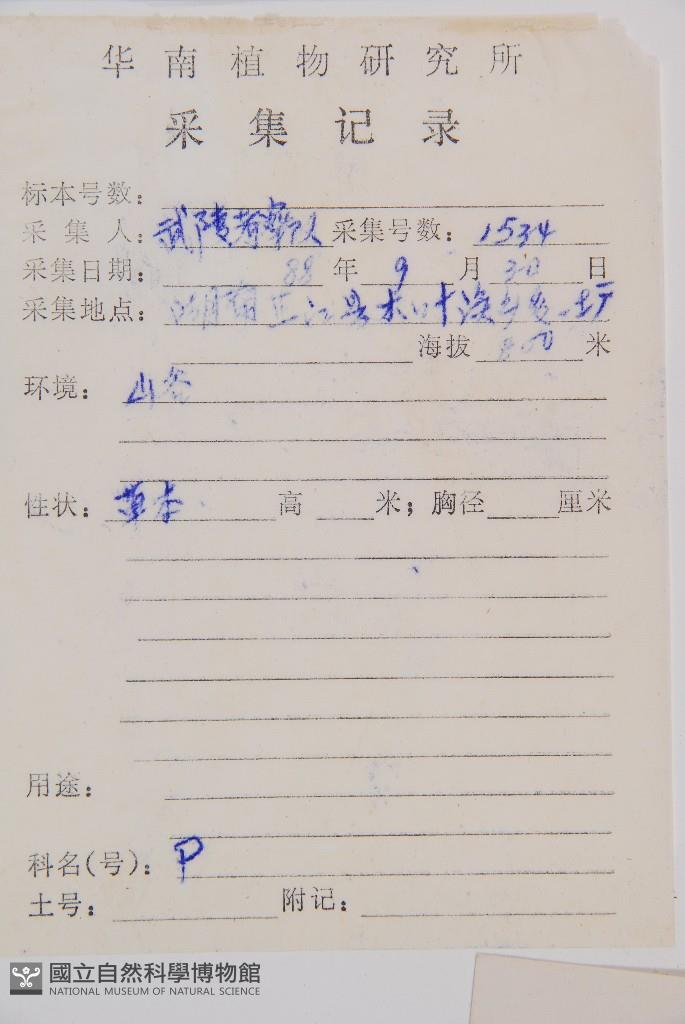 华南植物研究所
采集记录
标本号数：
采集人：武陵考察队 采集号数：1534
采集日期：88年9月30日
采集地点：湖南芷江县木叶溪乡
海拔 800 米
环境：山谷
性状：草本 高 米；胸径 厘米
用途：
科名(号)：P
土号： 附记：
國立自然科學博物館
NATIONAL MUSEUM OF NATURAL SCIENCE